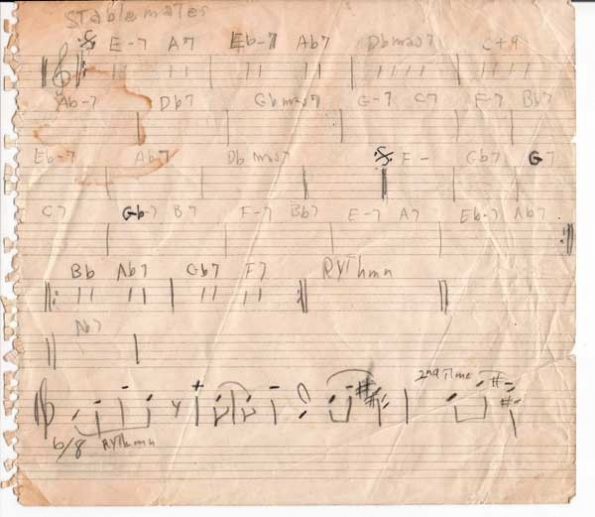 Stablemates
E-7 A7 Eb-7 Ab7 Dbmaj7 C+9
Ab-7 Db7 Gbmaj7 G-7 C7 F-7 Bb7
Eb-7 Ab7 Dbmaj7 F- Gb7 G7
C7 Gb-7 B7 F-7 Bb7 E-7 A7 Eb-7 Ab7
Bb Ab7 Gb7 F7 RYThmn
2nd Time
6/8 RYThmn